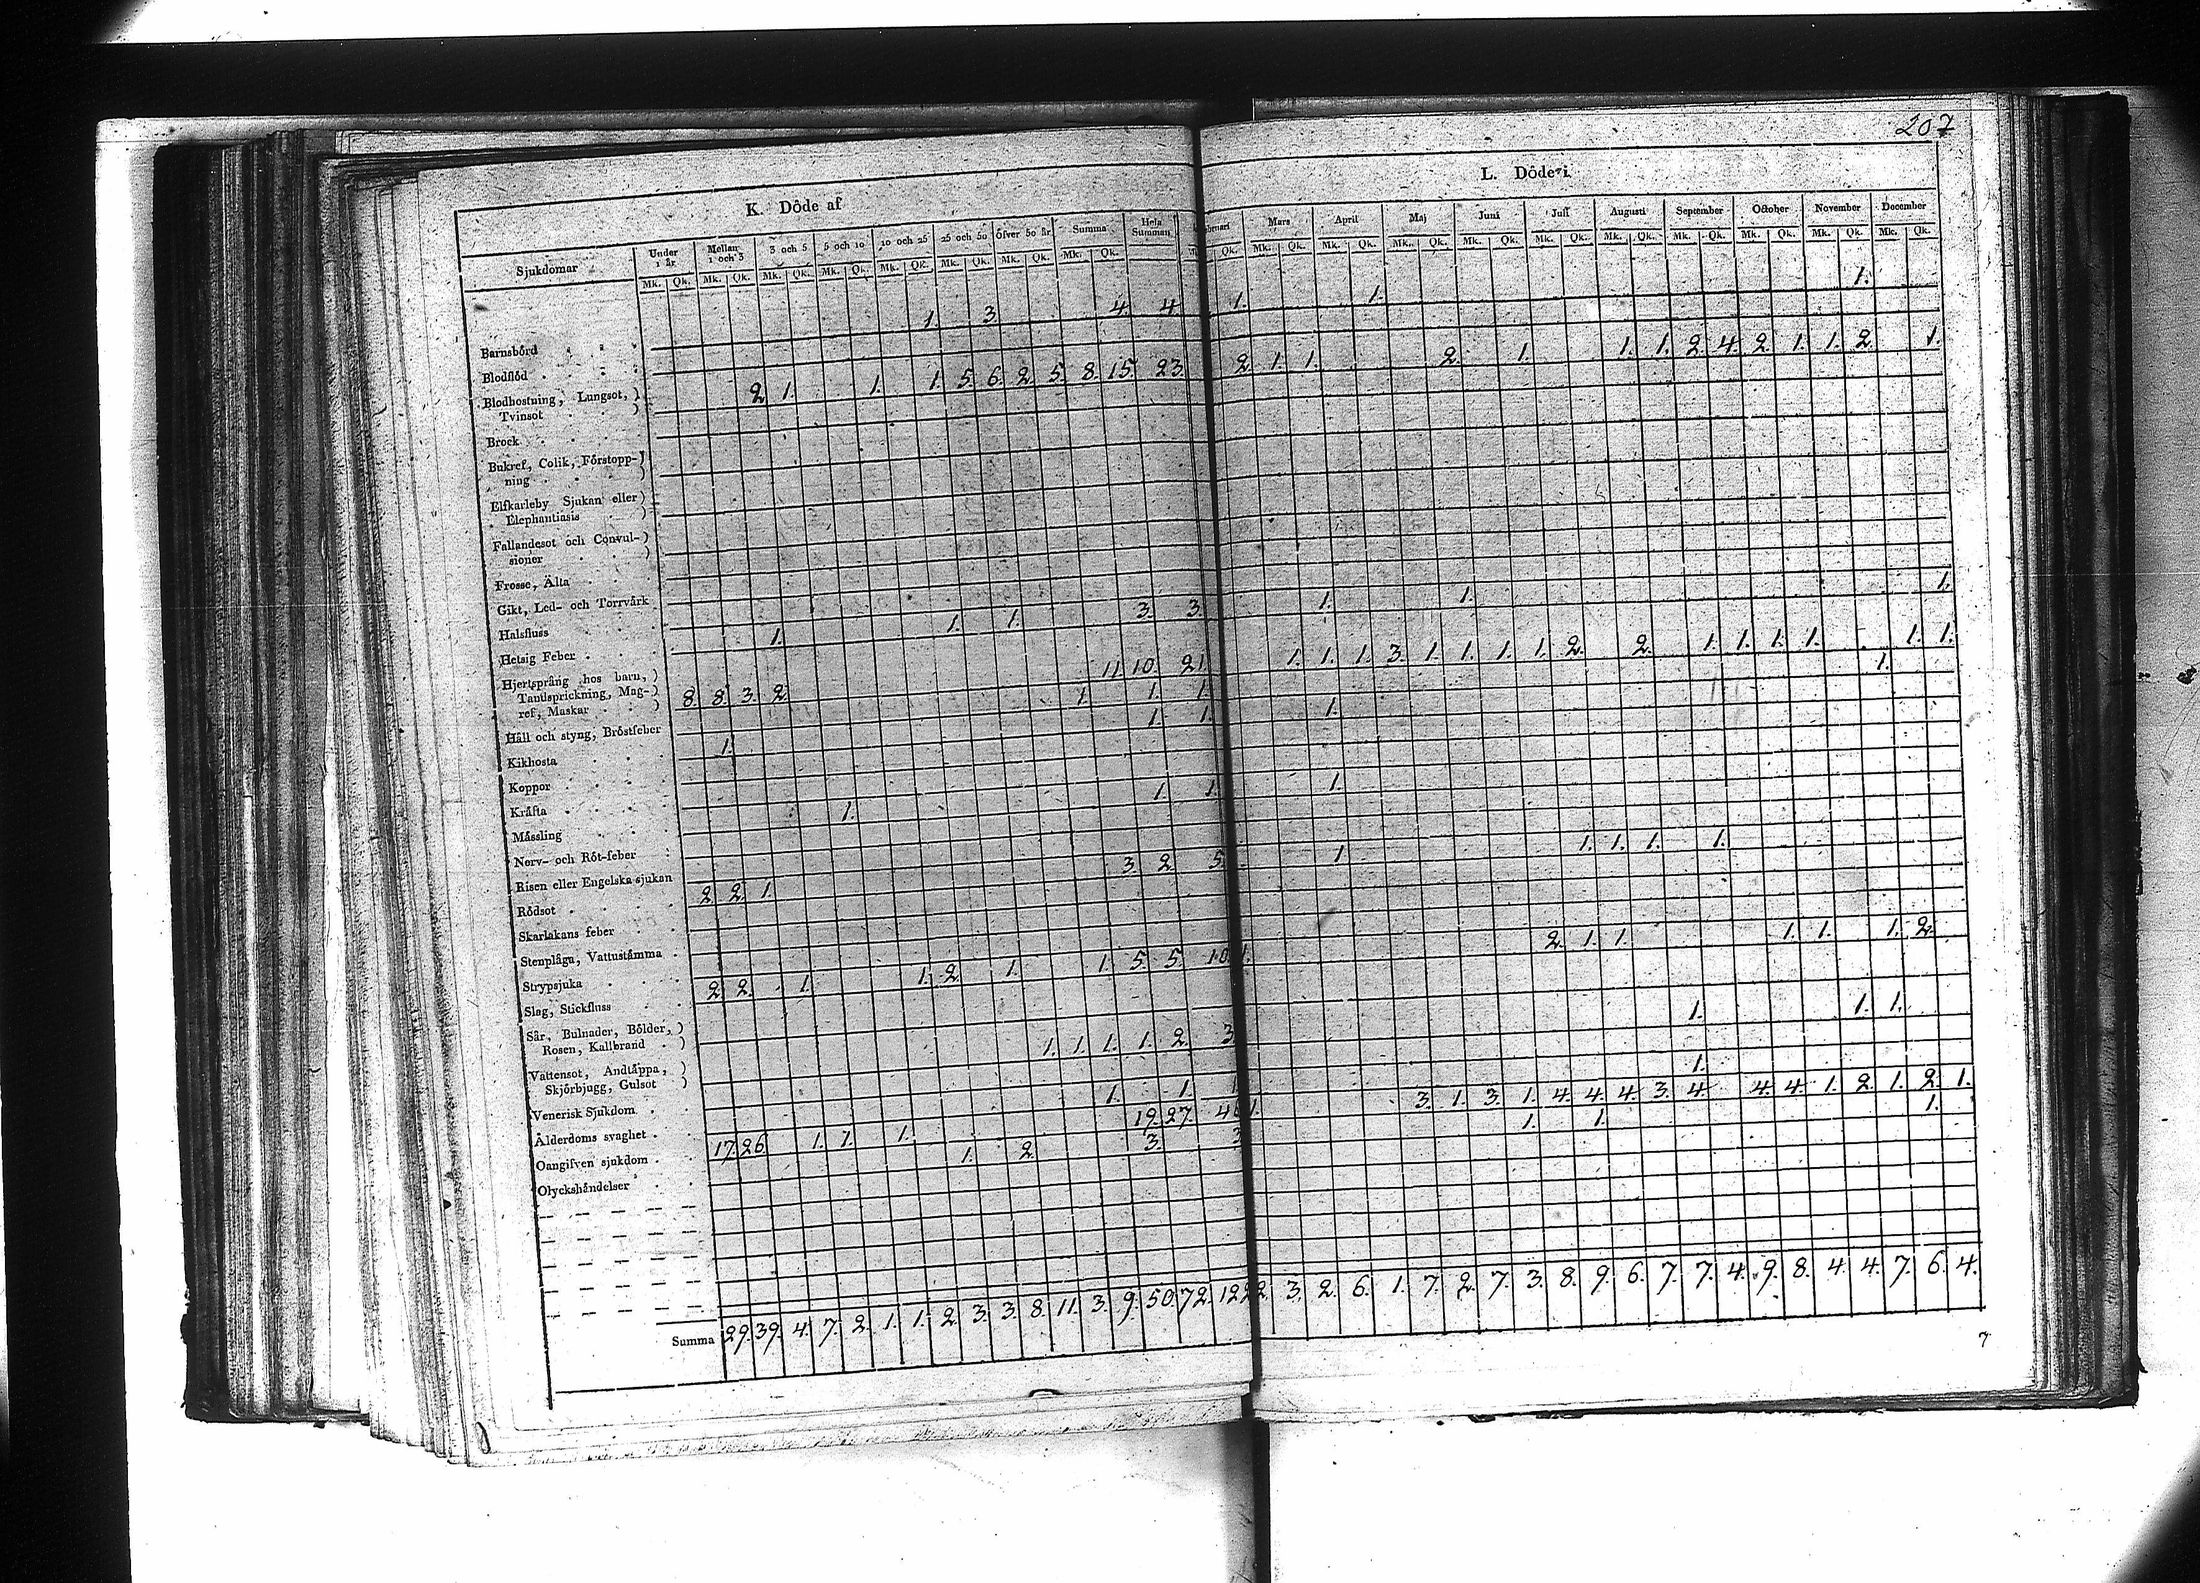 207
K. Döde af
L. Döde i
Sjukdomar Under 1 år Mellan 1 och 3 3 och 5 5 och 10 10 och 25 25 och 50 öfver 50 år Summa Hela Summan
Mars April Maj Juni Juli Augusti September October November December
Mk. Qk. Mk. Qk. Mk. Qk. Mk. Qk. Mk. Qk. Mk. Qk. Mk. Qk. Mk. Qk.
Qk. Mk. Qk. Mk. Qk. Mk. Qk. Mk. Qk. Mk. Qk. Mk. Qk. Mk. Qk. Mk. Qk. Mk. Qk. Mk. Qk.
Barnsbörd 1. 3. 4. 4. 1. 1. 1.
Blodflöd
Blodhostning, Lungsot, Tvinsot 2. 1. 1. 1. 5. 6. 2. 5. 8. 15. 23. 2. 1. 1. 2. 1. 1. 1. 2. 4. 2. 1. 1. 2. 1.
Brock
Bukref, Colik, Förstopp-
ning
Elfkarleby Sjukan eller
Elephantiasis
Fallandesot och Convul-
sioner
Frosse, Älta
Gikt, Led- och Torrvärk
Halsfluss
Hetsig Feber 1. 1. 1. 3. 3. 1. 1. 1.
Hjertsprång hos barn,
Tandsprickning, Mag-
ref, Maskar 8. 8. 3. 2. 11. 10. 21. 1. 1. 1. 3. 1. 1. 1. 1. 2. 2. 1. 1. 1. 1. 1. 1.
Håll och styng, Bröstfeber 1. 1. 1. 1.
Kikhosta 1. 1. 1. 1.
Koppor
Kräfta 1. 1. 1. 1.
Mässling
Nerv- och Röt-feber
Risen eller Engelska sjukan 2. 2. 1. 3. 2. 5. 1. 1. 1. 1. 1.
Rödsot
Skarlakans feber
Stenplåga, Vattustämma
Strypsjuka 2. 2. 1. 1. 2. 1. 1. 5. 5. 10. 1. 2. 1. 1. 1. 1. 1. 2.
Slag, Stickfluss
Sår, Bulnader, Bölder,
Rosen, Kallbrand 1. 1. 1. 1. 2. 3. 1. 1. 1.
Vattensot, Andtäppa,
Skjörbjugg, Gulsot
Venerisk Sjukdom
Ålderdoms svaghet 17. 26. 1. 1. 1. 19. 27. 1. 3. 1. 3. 1. 4. 4. 4. 3. 4. 4. 4. 1. 2. 1. 2. 1.
Oangifven sjukdom 1. 2. 3. 3 1. 1. 1.
Olyckshändelser
Summa 29. 39. 4. 7. 2. 1. 1. 2. 3. 3. 8. 11. 3. 9. 50. 72. 122 2. 3. 2. 6. 1. 7. 2. 7. 3. 8. 9. 6. 7. 7. 4. 9. 8. 4. 4. 7. 6. 4.
7